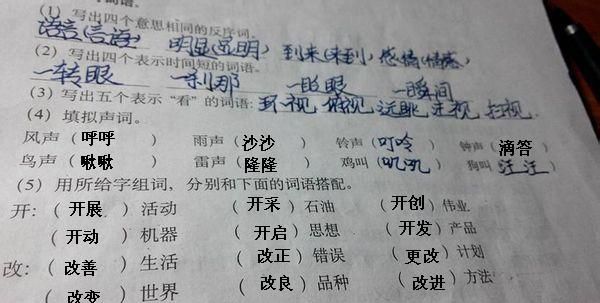 (1) 写出四个意思相同的反序词.
语言(言语) 明显(显明) 到来(来到) 感情(情感)
(2) 写出四个表示时间短的词语.
一转眼 一刹那 一眨眼 一瞬间
(3) 写出五个表示“看”的词语: 环视 俯视 远眺 注视 扫视
(4) 填拟声词.
风声(呼呼) 雨声(沙沙) 铃声(叮呤) 钟声(滴答)
鸟声(啾啾) 雷声(隆隆) 鸡叫(叽叽) 狗叫(汪汪)
(5) 用所给字组词, 分别和下面的词语搭配。
开: (开展)活动 (开采)石油 (开创)伟业
(开动)机器 (开启)思想 (开发)产品
改: (改善)生活 (改正)错误 (更改)计划
(改变)世界 (改良)品种 (改进)方法